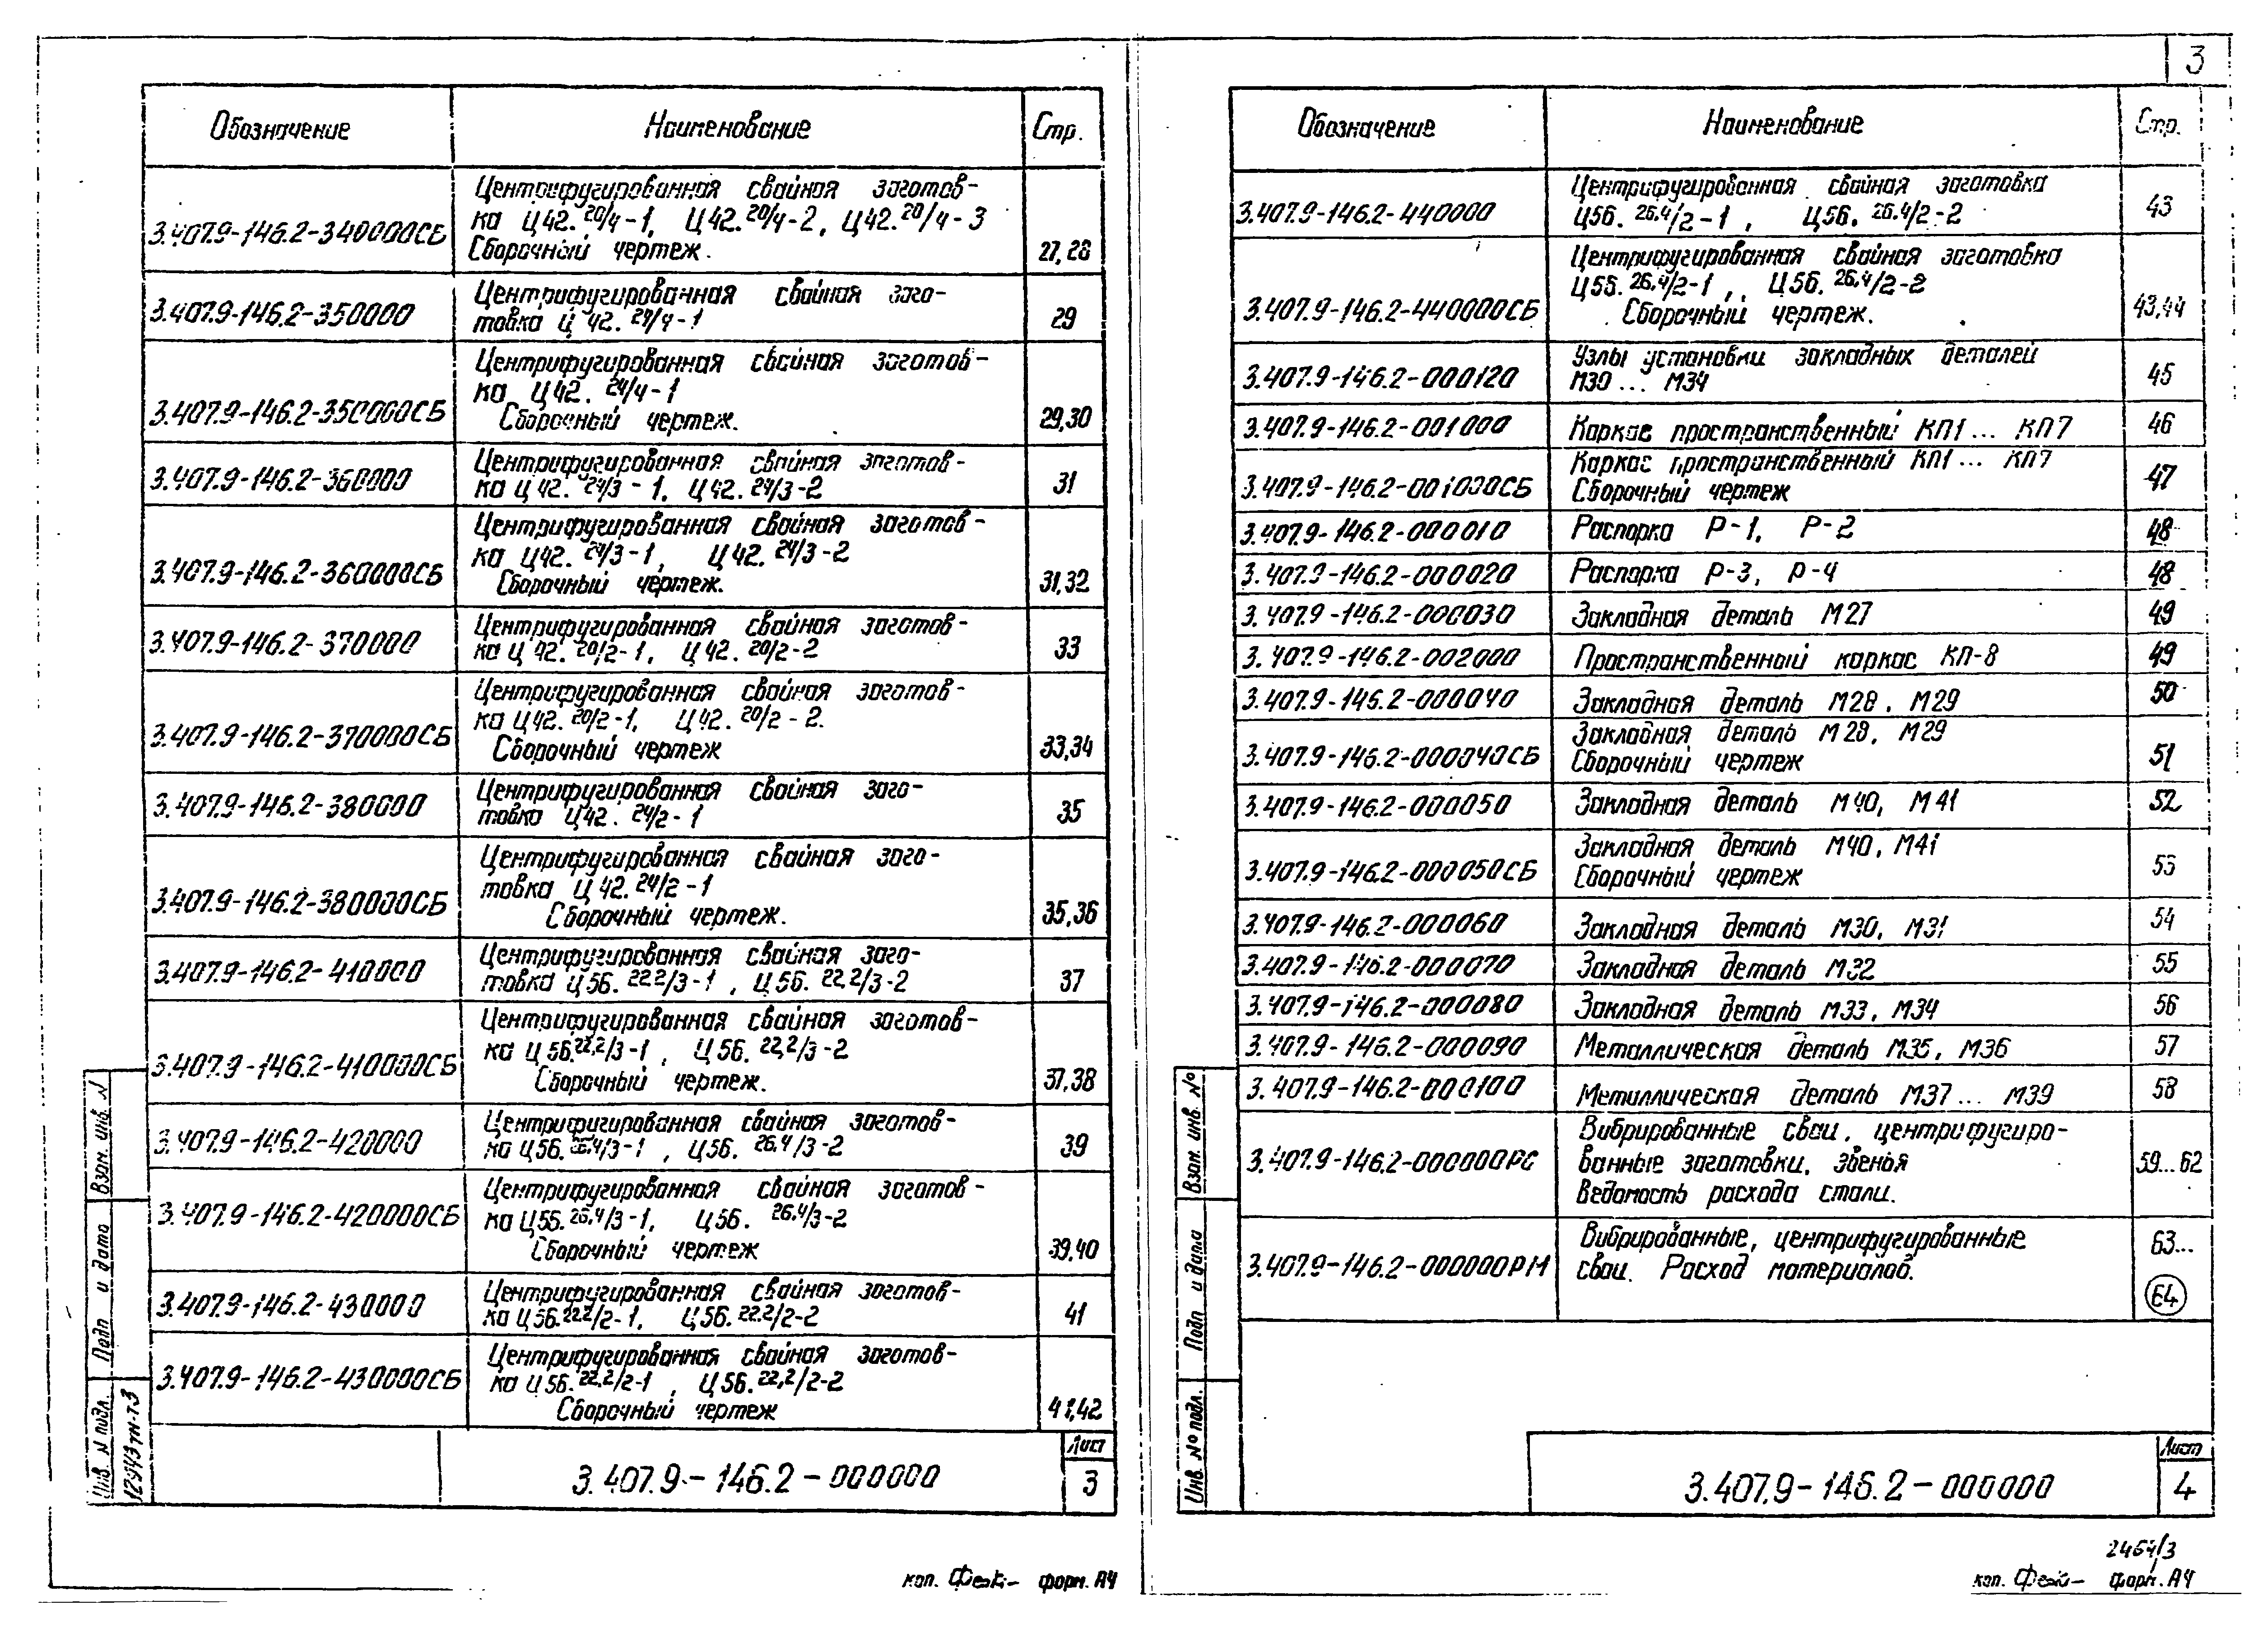 Обозначение Наименование Стр.
Центрифугированная свайная заготов-
ка Ц42.20/4-1, Ц42.20/4-2, Ц42.20/4-3
3.407.9-146.2-340000СБ Сборочный чертеж. 27,28
Центрифугированная свайная заго-
3.407.9-146.2-350000 товка Ц 42. 24/4-1 29
Центрифугированная свайная заготов-
ка Ц42. 24/4-1
3.407.9-146.2-350000СБ Сборочный чертеж. 29,30
Центрифугированная свайная заготов-
3.407.9-146.2-360000 ка Ц 42. 24/3-1, Ц42. 24/3-2 31
Центрифугированная свайная заготов-
ка Ц42. 24/3-1, Ц42. 24/3-2
3.407.9-146.2-360000СБ Сборочный чертеж. 31,32
Центрифугированная свайная заготов-
3.407.9-146.2-370000 ка Ц 42. 20/2-1, Ц 42. 20/2-2 33
Центрифугированная свайная заготов-
ка Ц42. 20/2-1, Ц42. 20/2-2.
3.407.9-146.2-370000СБ Сборочный чертеж 33,34
Центрифугированная свайная заго-
3.407.9-146.2-380000 товка Ц42. 24/2-1 35
Центрифугированная свайная заго-
товка Ц 42. 24/2-1
3.407.9-146.2-380000СБ Сборочный чертеж. 35,36
Центрифугированная свайная заго-
3.407.9-146.2-410000 товка Ц56. 22.2/3-1, Ц56. 22.2/3-2 37
Центрифугированная свайная заготов-
ка Ц56.22,2/3-1, Ц56. 22,2/3-2
3.407.9-146.2-410000СБ Сборочный чертеж. 37,38
Центрифугированная свайная заготов-
3.407.9-146.2-420000 ка Ц56. 26.4/3-1, Ц56. 26.4/3-2 39
Центрифугированная свайная заготов-
3.407.9-146.2-420000СБ ка Ц56.26,4/3-1, Ц56. 26.4/3-2
Сборочный чертеж 39,40
Центрифугированная свайная заготов-
3.407.9-146.2-430000 ка Ц56.22.2/2-1, Ц56.22.2/2-2 41
Центрифугированная свайная заготов-
3.407.9-146.2-430000СБ ка Ц56.22.2/2-1, Ц56.22,2/2-2
Сборочный чертеж 41,42
Взам. инв. N
Подп и дата
Инв. N подл.
12943тм-т3
3.407.9-146.2-000000
Лист
3
коп. форм. А4
3
Обозначение Наименование Стр.
Центрифугированная свайная заготовка
3.407.9-146.2-440000 Ц56. 26.4/2-1, Ц56. 26.4/2-2 43
Центрифугированная свайная заготовка
Ц56. 26.4/2-1, Ц56. 26.4/2-2
3.407.9-146.2-440000СБ Сборочный чертеж. 43,44
Узлы установки закладных деталей
3.407.9-146.2-000120 М30... М34 45
3.407.9-146.2-001000 Каркас пространственный КП1... КП7 46
Каркас пространственный КП1... КП7
3.407.9-146.2-001000СБ Сборочный чертеж 47
3.407.9-146.2-000010 Распорка Р-1, Р-2 48
3.407.9-146.2-000020 Распорка Р-3, Р-4 48
3.407.9-146.2-000030 Закладная деталь М27 49
3.407.9-146.2-002000 Пространственный каркас КП-8 49
3.407.9-146.2-000040 Закладная деталь М28, М29 50
Закладная деталь М28, М29
3.407.9-146.2-000040СБ Сборочный чертеж 51
3.407.9-146.2-000050 Закладная деталь М40, М41 52
Закладная деталь М40, М41
3.407.9-146.2-000050СБ Сборочный чертеж 53
3.407.9-146.2-000060 Закладная деталь М30, М31 54
3.407.9-146.2-000070 Закладная деталь М32 55
3.407.9-146.2-000080 Закладная деталь М33, М34 56
3.407.9-146.2-000090 Металлическая деталь М35, М36 57
3.407.9-146.2-000100 Металлическая деталь М37... М39 58
Вибрированные сваи, центрифугиро-
3.407.9-146.2-000000РС ванные заготовки, звенья 59...62
Ведомость расхода стали.
Вибрированные, центрифугированные 63...
3.407.9-146.2-000000РМ сваи. Расход материалов.
64
Взам. инв. №
Подп и дата
Инв. № подл.
3.407.9-146.2-000000
Лист
4
2464/3
коп. форм. А4